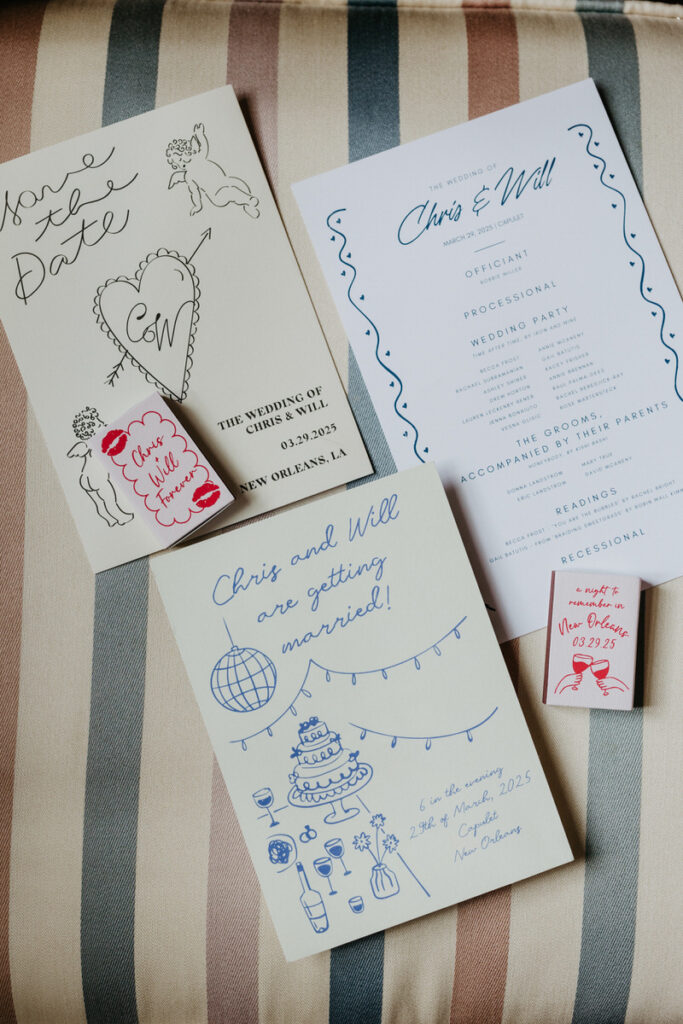 Save
the
Date
C&W
THE WEDDING OF
CHRIS & WILL
03.29.2025
NEW ORLEANS, LA
Chris
&
Will
Forever
THE WEDDING OF
Chris & Will
MARCH 29, 2025 | CAPULET
OFFICIANT
ROBBIE MILLER
PROCESSIONAL
WEDDING PARTY
TIME AFTER TIME, BY IRON AND WINE
BECCA FROST
RACHAEL SUBRAMANIAN
ASHLEY SHIRES
DREW HORTON
LAUREN LECKENBY HENER
JENNA BONAGUTO
VESNA GLISIC
ANNIE MCANENY
GAIL BATUTIS
KACEY FRISHER
ANNE BRENNAN
RACHEL BENEDICK-ABT
ROSE WARTENBECK
THE GROOMS,
ACCOMPANIED BY THEIR PARENTS
HONEYBODY, BY KISHI BASHI
DONNA LANDSTROM
ERIC LANDSTROM
MARY TRUE
DAVID MCANENY
READINGS
BECCA FROST - 'YOU ARE THE BUBBLES' BY RACHEL BRIGHT
GAIL BATUTIS - FROM 'BRAIDING SWEETGRASS' BY ROBIN WALL KIMM
RECESSIONAL
Chris and Will
are getting
married!
6 in the evening
29th of March, 2025
Capulet
New Orleans
a night to
remember in
New Orleans
03.29.25